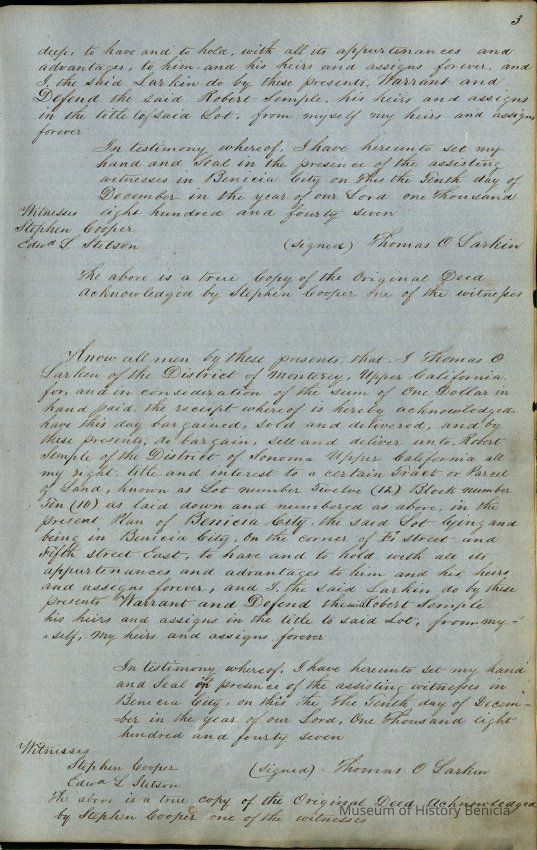 3
deep, to have and to hold, with all its appurtenances and
advantages, to him and his heirs and assigns forever, and
I, the said Larkin do by these presents, Warrant and
Defend the said Robert Semple, his heirs and assigns
in the title to said Lot, from myself my heirs and assigns
forever
In testimony whereof, I have hereunto set my
hand and Seal in the presence of the assisting
witnesses in Benicia City on this the Tenth day of
December in the year of our Lord one thousand
eight hundred and fourty seven
Witnesses
Stephen Cooper
Edwd L Stetson (Signed) Thomas O Larkin
The above is a true Copy of the Original Deed
Acknowledged by Stephen Cooper one of the witnesses
Know all men by these presents, that I Thomas O
Larken of the District of Monterey, Upper California
for, and in consideration of the sum of One Dollar in
hand paid, the receipt whereof is hereby acknowledged
have this day bargained, sold and delivered, and by
these presents, do bargain, sell and deliver unto Robert
Semple of the District of Sonoma Upper California all
my right, title and interest to a certain Tract or Parcel
of Land, known as Lot number Twelve (12) Block number
Ten (10) as laid down and numbered as above, in the
present Plan of Benicia City, the said Lot lying and
being in Benicia City, On the corner of F. Street and
Fifth street East, to have and to hold with all its
appurtenances and advantages to him and his heirs
and assigns forever, and I, the said Larkin do by these
presents Warrant and Defend the Robert Semple
his heirs and assigns in the title to said Lot, from my-
-self, My heirs and assigns forever
In testimony whereof, I have hereunto set my hand
and Seal in presence of the assisting witnesses in
Benicia City, on this the, the Tenth day of Decem-
ber in the year of our Lord, One thousand eight
hundred and fourty seven
Witnesses
Stephen Cooper (Signed) - Thomas O Larkin
Edwd L Stetson
The above is a true copy of the Original Deed Acknowledged
by Stephen Cooper one of the witnesses
Museum of History Benicia